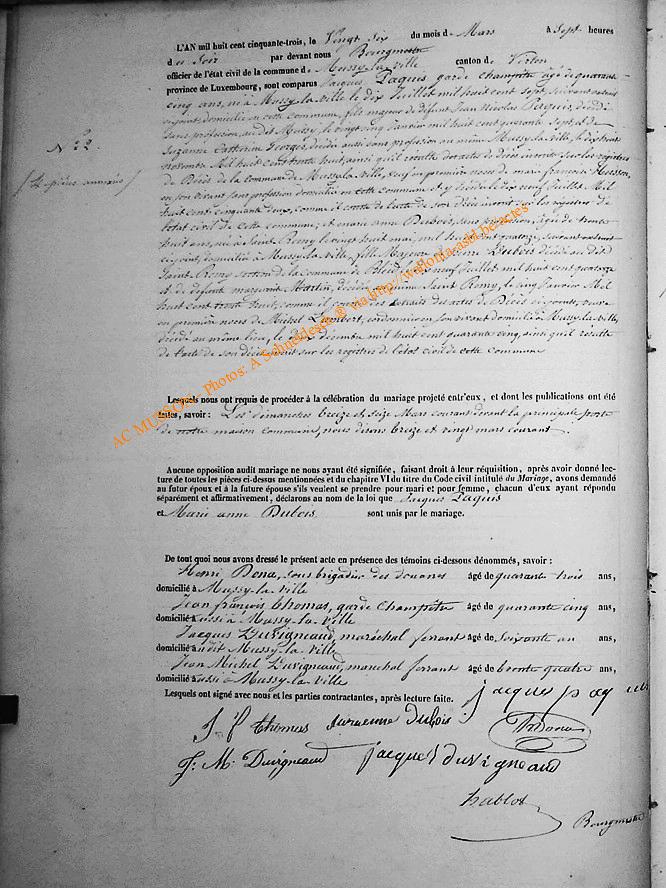 L'AN mil huit cent cinquante-trois, le Vingt six du mois de Mars à Sept heures
du Soir par devant nous Bourgmestre
officier de l'état civil de la commune de Mussy-la-ville canton de Virton
province de Luxembourg, sont comparus Jacques Paquis garde champêtre âgé de quarante
cinq ans, né à Mussy-la-ville le dix Juillet mil huit cent sept, suivant extrait
cijoint, domicilié en cette commune, fils majeur de défunt Jean Nicolas Paquis, décédé
sans profession, audit Mussy, le vingt cinq Janvier mil huit cent quarante Sept, et de
Suzanne Catherine Georges, décédée aussi sans profession au même Mussy-la-ville, le dix trois
novembre Mil huit cent trente huit, ainsi qu'il résulte des actes de décès inscrits sur les registres
de Décès de la commune de Mussy-la-ville, veuf en premières noces de marie françoise Husson,
en son vivant sans profession domiciliée en cette commune et y décédée le dix neuf Juillet Mil
huit cent cinquante deux, comme il conste de l'acte de son décès inscrit sur les registres de
l'état civil de cette commune; et marie anne Dubois, sans profession, âgée de trente
huit ans, née à Saint Remy le vingt huit mai, mil huit cent quatorze, suivant extrait
cijoint, domiciliée à Mussy-la-ville, fille Majeure de Pierre Dubois décédé au dit
Saint Remy section de la commune de Bleid le neuf Juillet mil huit cent quatorze
et de défunte marguerite Martin, décédée au même Saint Remy, le cinq Janvier Mil
huit cent trente huit, comme il conste des extraits des actes de Décès cijoints, veuve
en premières noces de Michel Lambert, cordonnier en son vivant domicilié à Mussy-la-ville,
décédé au même lieu, le décembre mil huit cent quarante cinq, ainsi qu'il résulte
de l'acte de son décès inscrit sur les registres de l'état civil de cette commune
N° 22
(4 pièces annexées)
Lesquels nous ont requis de procéder à la célébration du mariage projeté entr'eux, et dont les publications ont été
faites, savoir : Les dimanches treize et seize Mars courant devant la principale porte
de notre maison commune, nous disons treize et vingt mars courant
Aucune opposition audit mariage ne nous ayant été signifiée, faisant droit à leur réquisition, après avoir donné lec-
ture de toutes les pièces ci-dessus mentionnées et du chapitre VI du titre du Code civil intitulé du Mariage, avons demandé
au futur époux et à la future épouse s'ils veulent se prendre pour mari et pour femme, chacun d'eux ayant répondu
séparément et affirmativement, déclarons au nom de la loi que Jacques Paquis
et Marie anne Dubois sont unis par le mariage.
De tout quoi nous avons dressé le présent acte en présence des témoins ci-dessous dénommés, savoir :
Henri Dona, sous brigadier des douanes âgé de quarante trois ans,
domicilié à Mussy-la-ville
Jean françois thomas, garde Champêtre âgé de quarante cinq ans,
domicilié aussi à Mussy-la-ville
Jacques Duvigneaud, maréchal ferrant âgé de Soixante un ans,
domicilié audit Mussy-la-ville
Jean Michel Duvigneaud, marechal ferrant âgé de trente quatre ans,
domicilié aussi à Mussy-la-ville
Lesquels ont signé avec nous et les parties contractantes, après lecture faite. jacques paquis
J f thomas marienne dubois
J. M. Duvigneaud jacques duvigneaud
hablot
Bourgmestre
AC MUSSON - Photos: A Schneidesch ® via http://wallonia-asbl.be-actes